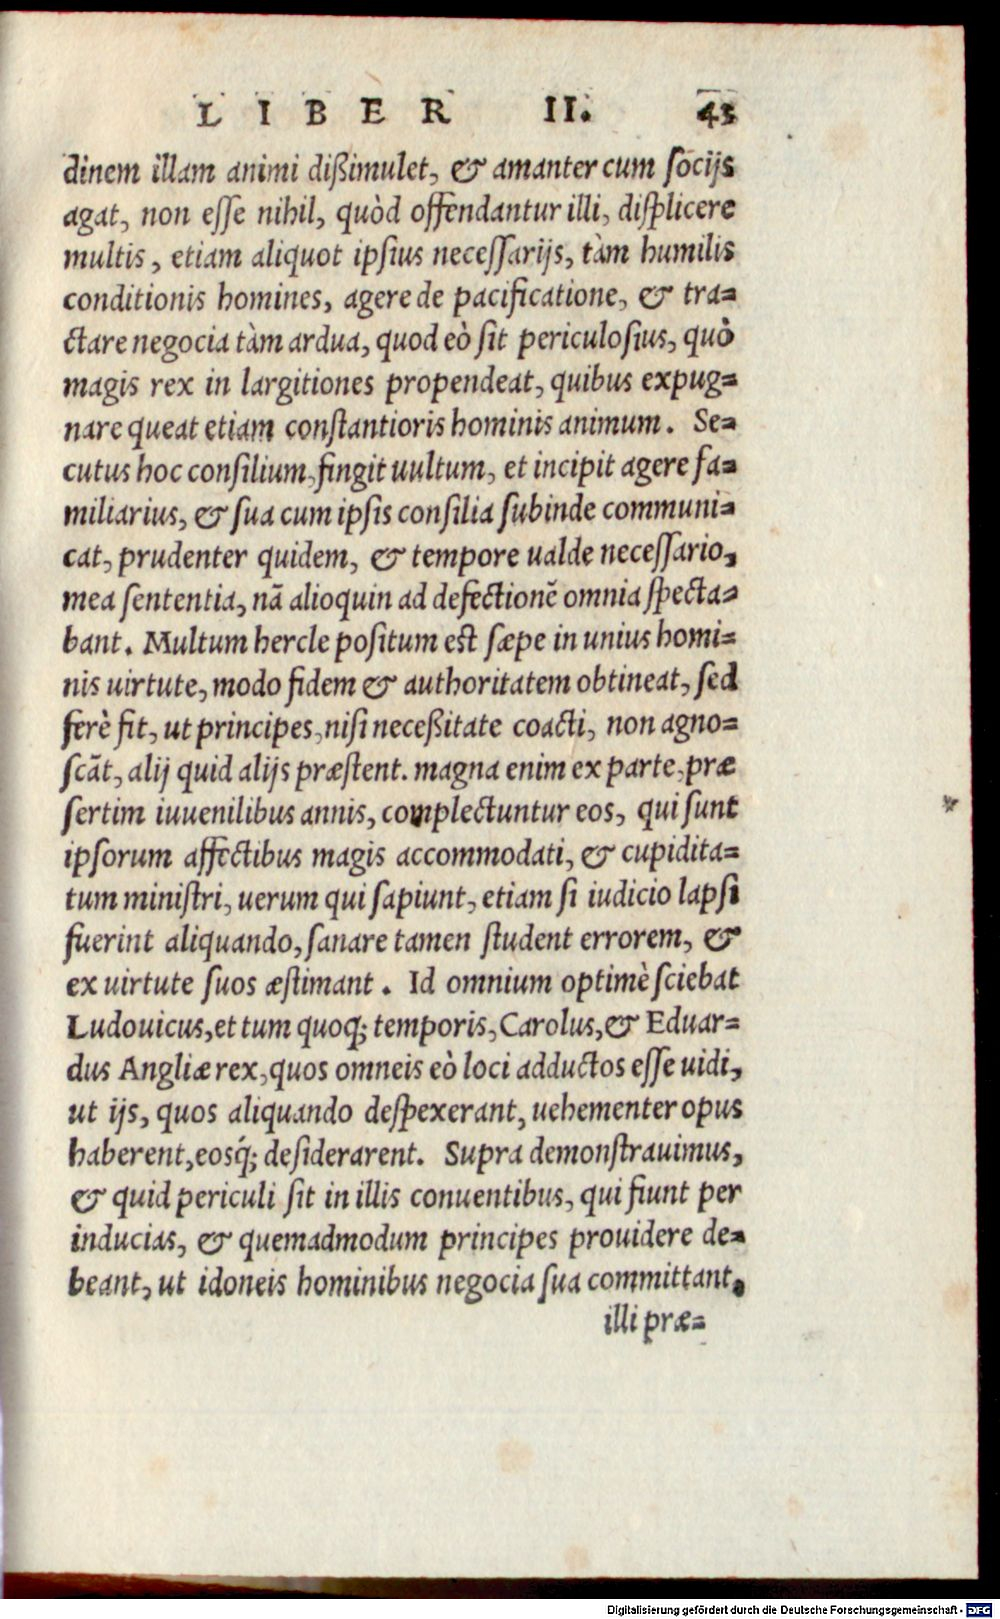 LIBER II. 43
dinem illam animi dißimulet, & amanter cum socijs
agat, non esse nihil, quòd offendantur illi, displicere
multis, etiam aliquot ipsius necessarijs, tàm humilis
conditionis homines, agere de pacificatione, & tra=
ctare negocia tàm ardua, quod eò sit periculosius, quò
magis rex in largitiones propendeat, quibus expug=
nare queat etiam constantioris hominis animum. Se=
cutus hoc consilium, fingit uultum, et incipit agere fa=
miliarius, & sua cum ipsis consilia subinde communi=
cat, prudenter quidem, & tempore ualde necessario,
mea sententia, nã alioquin ad defectionẽ omnia specta=
bant. Multum hercle positum est sæpe in unius homi=
nis uirtute, modo fidem & authoritatem obtineat, sed
ferè fit, ut principes, nisi neceßitate coacti, non agno=
scãt, alij quid alijs præstent. magna enim ex parte, præ
sertim iuuenilibus annis, complectuntur eos, qui sunt
ipsorum affectibus magis accommodati, & cupidita=
tum ministri, uerum qui sapiunt, etiam si iudicio lapsi
fuerint aliquando, sanare tamen student errorem, &
ex uirtute suos æstimant. Id omnium optimè sciebat
Ludouicus, et tum quoq; temporis, Carolus, & Eduar=
dus Angliæ rex, quos omneis eò loci adductos esse uidi,
ut ijs, quos aliquando despexerant, uehementer opus
haberent, eosq́; desiderarent. Supra demonstrauimus,
& quid periculi sit in illis conuentibus, qui fiunt per
inducias, & quemadmodum principes prouidere de=
beant, ut idoneis hominibus negocia sua committant,
illi præ=
Digitalisierung gefördert durch die Deutsche Forschungsgemeinschaft - DFG